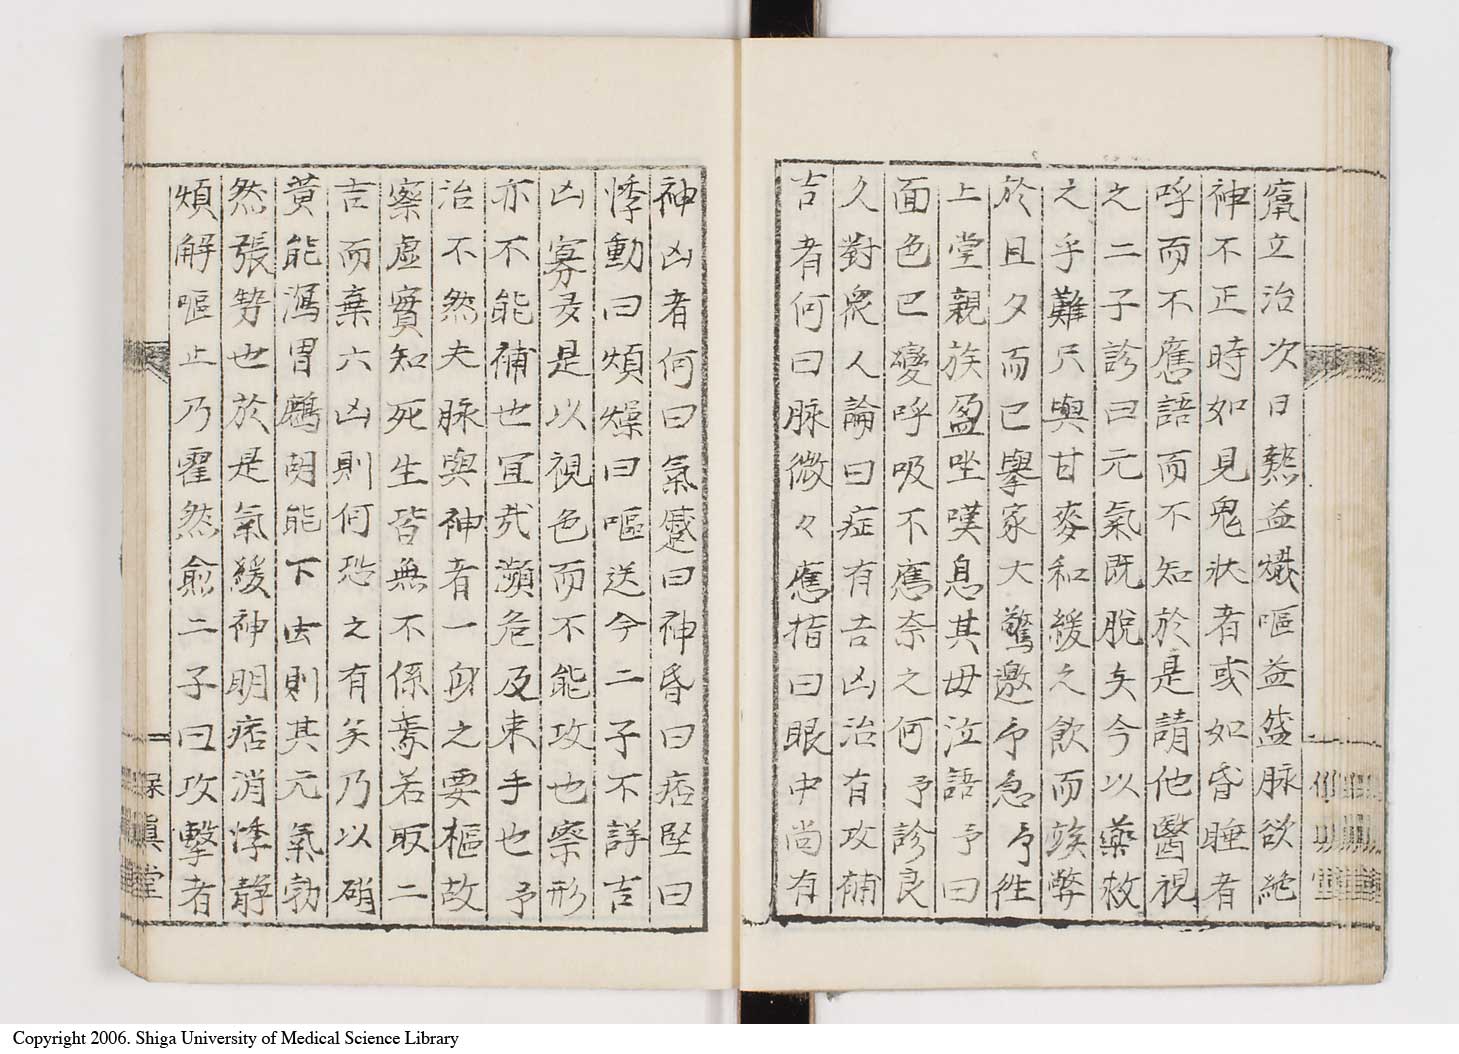 癘立治次日熱益熾嘔益盛脉欲絶
神不正時如見鬼狀者或如昏睡者
呼而不應語而不知於是請他醫視
之二子診曰元氣既脱矣今以藥救
之乎難只與甘麥和緩之飲而竢弊
於且夕而已擧家大驚邀予急予徃
上堂親族盈坐嘆息其毋泣語予曰
面色已變呼吸不應奈之何予診良
久對衆人論曰症有吉凶治有攻補
吉者何曰脉微々應指曰眼中尚有
神凶者何曰氣蹙曰神昏曰痞堅曰
悸動曰煩燥曰嘔送今二子不詳吉
凶寡㕛是以視色而不能攻也察形
亦不能補也冝㦲瀕危及束手也予
治不然夫脉與神者一身之要樞故
察虚實知死生皆無不係焉若取二
吉而棄六凶則何恐之有矣乃以硝
黄能瀉胃鷓胡能下𠫤則其元氣勃
然張勢也於是氣緩神明痞消悸静
煩解嘔止乃霍然愈二子曰攻擊者
保眞堂
Copyright 2006. Shiga University of Medical Science Library